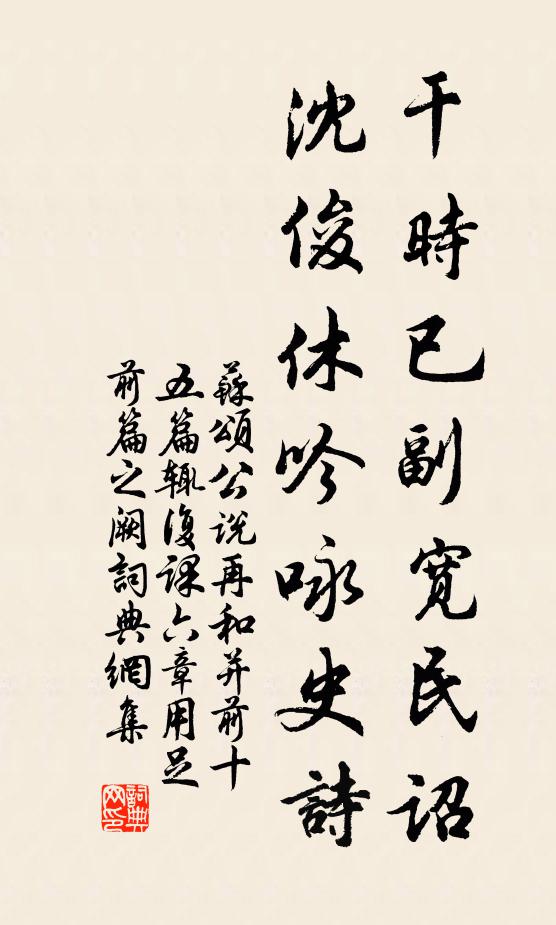 干時已副寬民詔
沈俊休吟咏史詩
蘇頌公説再和并前十
五篇輙復課六章用足
前篇之闕詞典網集
詞典
网印